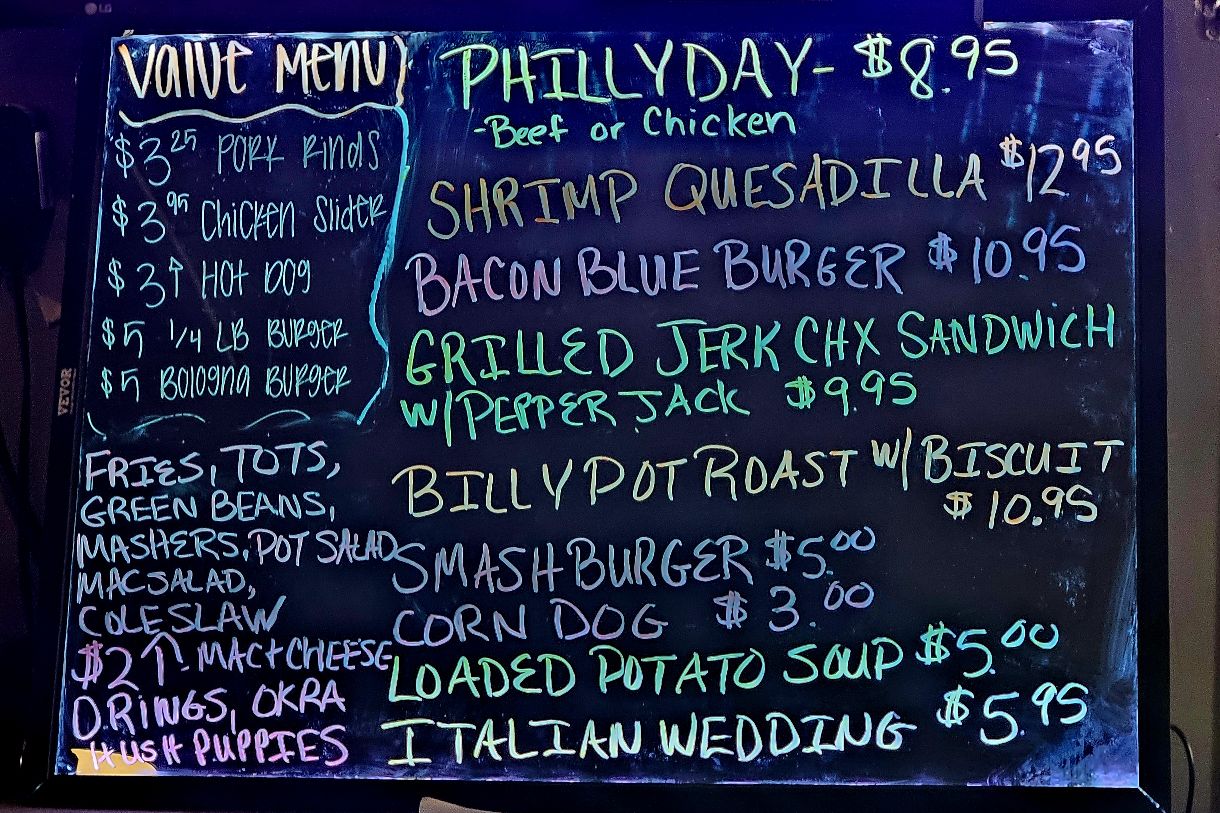 LG
Value Menu
$3.25 Pork Rinds
$3.95 Chicken Slider
$3↑ Hot Dog
$5 1/4 LB Burger
$5 Bologna Burger
FRIES, TOTS,
GREEN BEANS,
MASHERS, POT SALAD
MAC SALAD,
COLESLAW
$2↑ MAC+CHEESE
O RINGS, OKRA
HUSH PUPPIES
PHILLY DAY- $8.95
-Beef or Chicken
SHRIMP QUESADILLA $12.95
BACON BLUE BURGER $10.95
GRILLED JERK CHX SANDWICH
W/PEPPER JACK $9.95
BILLY POT ROAST W/BISCUIT
$10.95
SMASHBURGER $5.00
CORN DOG $3.00
LOADED POTATO SOUP $5.00
ITALIAN WEDDING $5.95
VEVOR